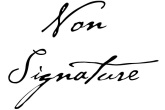 Non
Signature